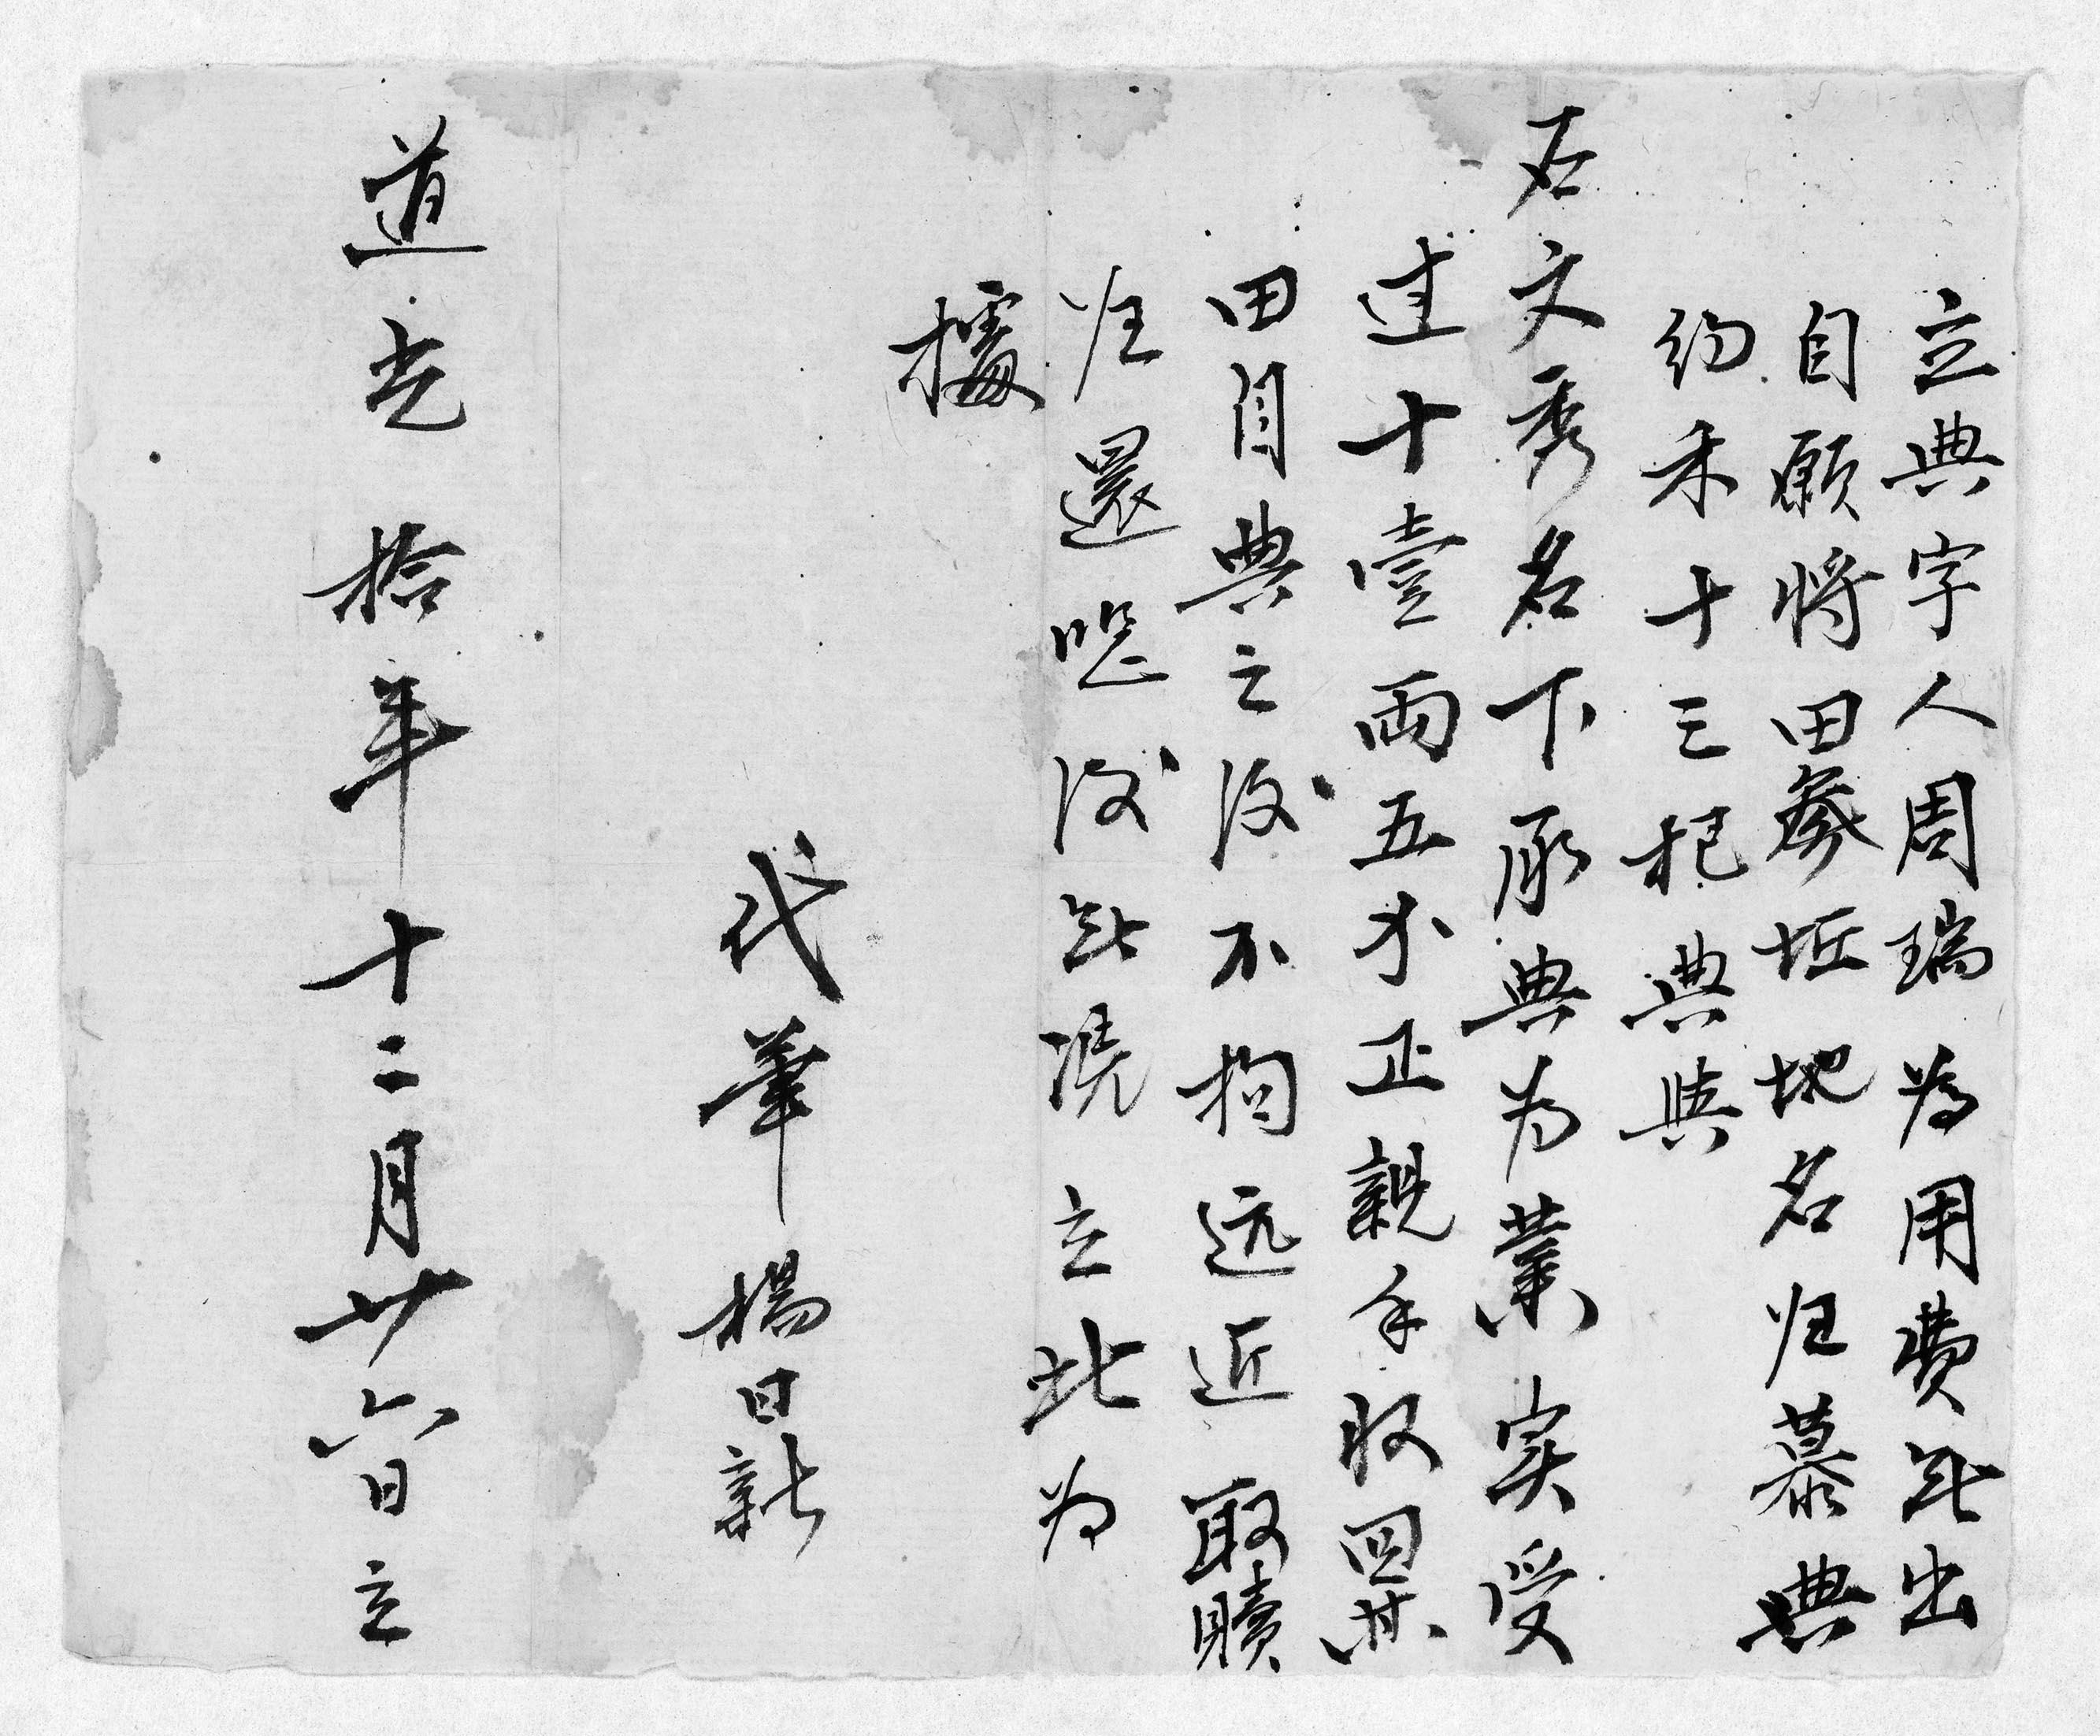 立典字人周瑞为用費无出
自願将田叄坵地名归慕典
约禾十三把典與
石文秀名下承典为業实受
过十壹兩五才正親手收囬其
田自典之後不拘远近取贖
归還恐後无凴立此为
據
代筆楊日新
道光拾年十二月廿六日立